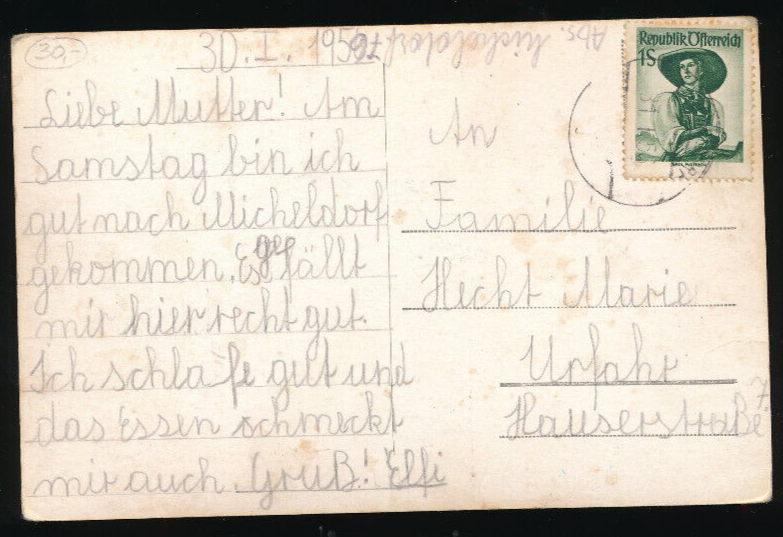 30,-
30. I. 195
Abs. Micheldorf
Republik Österreich
1S
Liebe Mutter! Am
Samstag bin ich
gut nach Micheldorf
gekommen. Es gefällt
mir hier recht gut.
Ich schlafe gut und
das Essen schmeckt
mir auch. Gruß! Elfi
An
Familie
Hecht Marie
Urfahr
Hauserstraße 7